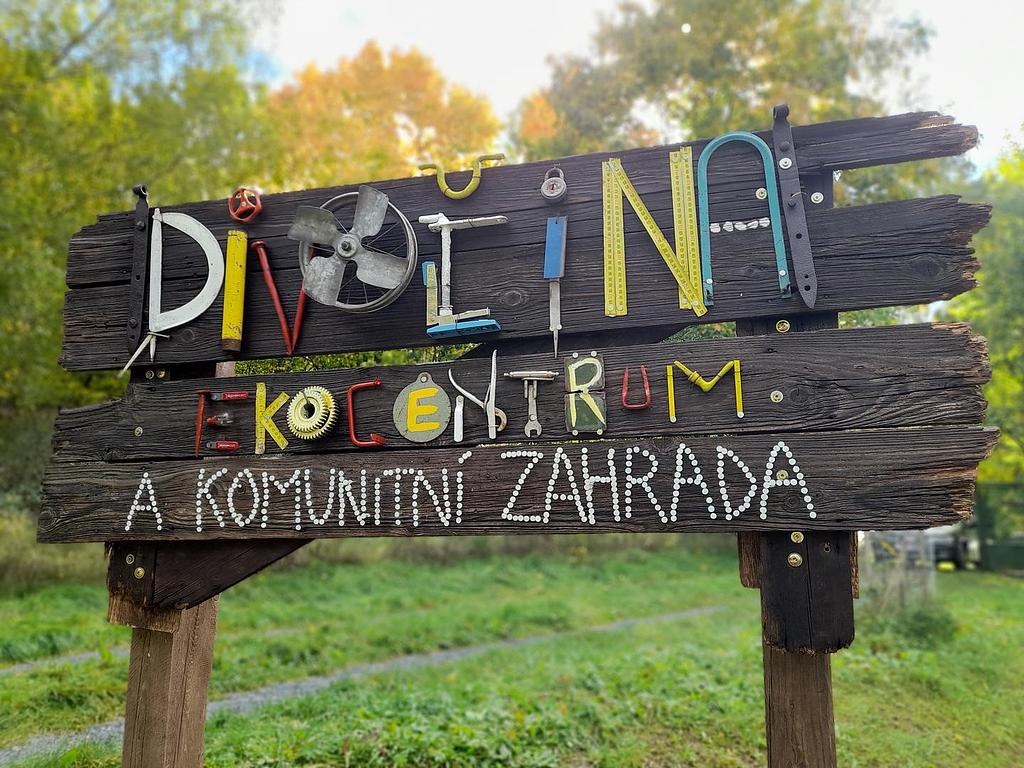 DIVOČINA
EKOCENTRUM
A KOMUNITNÍ ZAHRADA